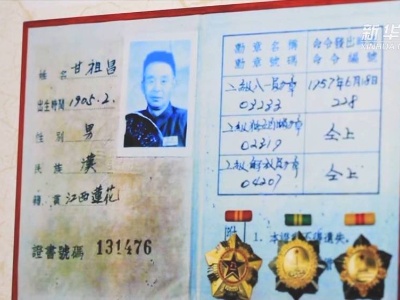 新华
姓名 甘祖昌
出生時間 1905.2.
性別 男
民族 漢
籍貫 江西蓮花
證書號碼 131476
勳章名稱
勳章號碼
命令發出時間
命令編號
二級八一勳章
03233
1957年6月18日
228
二級独立自由勳章
02319
仝上
二級解放勳章
04207
仝上
附
1. 本證不得遺失